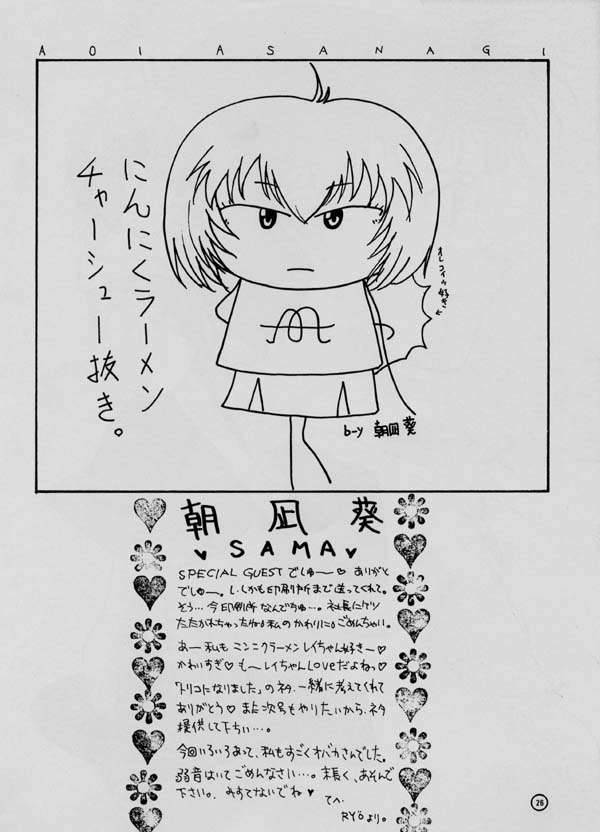 AOI ASANAGI
にんにくラーメン
チャーシュー抜き。
オレコイツ好き
by 朝凪 葵
朝凪葵
♥SAMA♥
SPECIAL GUESTでしゅ〜♡ ありがと
でしゅ〜。しかも印刷所まで送ってくれて。
そう…今印刷所なんでちゅ…。社長にケツ
たたかれちゃったね。私のかわりに。ごめんちゃい。
あー私もニンニクラーメンレイちゃん好きー♡
かわいすぎ♡ も〜レイちゃんLoveだよねっ♡
「トリコになりました」のネタ、一緒に考えてくれて
ありがとう♡ また次号もやりたいから、ネタ
提供して下ちい…。
今回いろいろあって、私もすごくオバカさんでした。
弱音はいてごめんなさい…。末長く、あそんで
下さい。みすてないでね♥
てへ
RYOより。
26